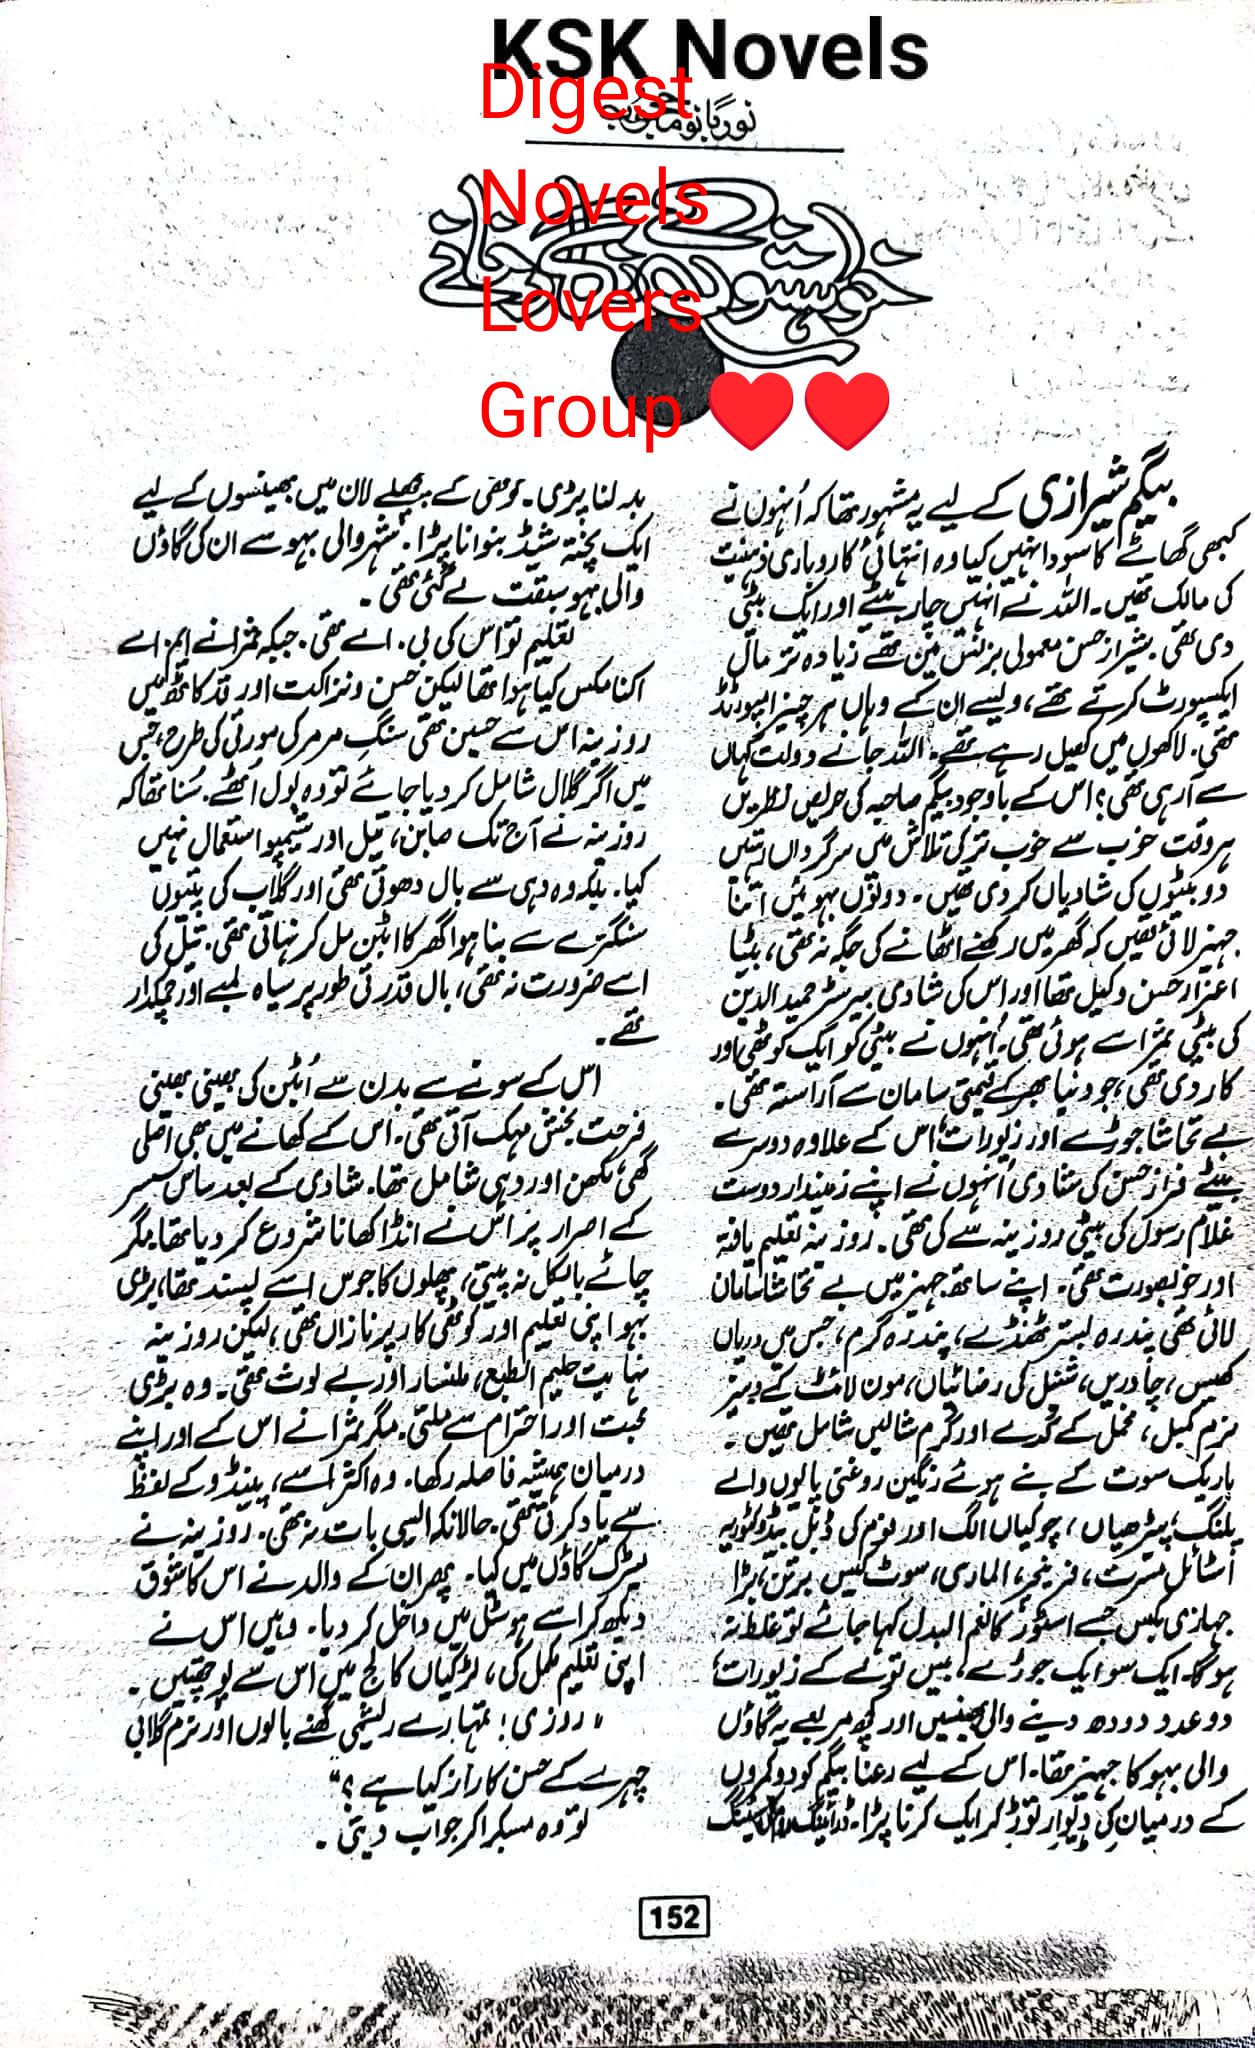 KSK Novels
Digest
Novels
Lovers
Group
نور بانو محجوب
بیگم شیرازی کے لیے یہ مشہور تھا کہ اُنہوں نے
کبھی گھاٹے کا سودا نہیں کیا وہ انتہائی کاروباری ذہنیت
کی مالک تھیں۔ اللہ نے انہیں چار بیٹے اور ایک بیٹی
دی تھی۔ شیراز حسن معمولی بزنس مین تھے زیادہ تر مال
ایکسپورٹ کرتے تھے، ویسے ان کے وہاں ہر چیز امپورٹڈ
تھی۔ لاکھوں میں کھیل رہے تھے۔ اللہ جانے دولت کہاں
سے آ رہی تھی؟ اس کے باوجود بیگم صاحبہ کی حریص نظریں
ہر وقت خوب سے خوب تر کی تلاش میں سرگرداں رہتیں
دو بیٹوں کی شادیاں کر دی تھیں۔ دونوں بہوئیں اتنا
جہیز لائی تھیں کہ گھر میں رکھنے اٹھانے کی جگہ نہ تھی، بیٹا
اعزاز حسن وکیل تھا اور اس کی شادی بیرسٹر حمید الدین
کی بیٹی ثمرا سے ہوئی تھی۔ اُنہوں نے بیٹی کو ایک کوٹھی اور
کار دی تھی، جو دنیا بھر کے قیمتی سامان سے آراستہ تھی۔
بے تحاشا جوڑے اور زیورات، اس کے علاوہ دوسرے
بیٹے فراز حسن کی شادی اُنہوں نے اپنے زمیندار دوست
غلام رسول کی بیٹی روزینہ سے کی تھی۔ روزینہ تعلیم یافتہ
اور خوبصورت تھی۔ اپنے ساتھ جہیز میں بے تحاشا سامان
لائی تھی پندرہ بستر ٹھنڈے، پندرہ گرم، جس میں دریاں
کھیس، چادریں، شنیل کی رضائیاں، مون لائٹ کے دبیز
نرم کمبل، مخمل کے گدے اور گرم شالیں شامل تھیں۔
باریک سوت کے بنے ہوئے رنگین روغنی پایوں والے
پلنگ، پیڑھیاں، چوکیاں الگ اور فوم کی ڈبل بیڈ وکٹوریہ
اسٹائل مسہری، فرنیچر، الماری، سوٹ کیس برتن، بڑا
جہازی بکس جسے اسٹور کا نعم البدل کہا جائے تو غلط نہ
ہوگا۔ ایک سو ایک جوڑے، بیس تولے کے زیورات،
دو عدد دودھ دینے والی بھینسیں اور کچھ مربعے یہ گاؤں
والی بہو کا جہیز تھا۔ اس کے لیے رعنا بیگم کو دو کمروں
کے درمیان کی دیوار توڑ کر ایک کرنا پڑا۔ ڈرائینگ
بدلنا پڑی۔ کوٹھی کے پچھلے لان میں بھینسوں کے لیے
ایک پختہ شیڈ بنوانا پڑا۔ شہر والی بہو سے ان کی گاؤں
والی بہو سبقت لے گئی تھی۔
تعلیم تو اس کی بی۔ اے تھی۔ جبکہ ثمرا نے ایم اے
اکنامکس کیا ہوا تھا لیکن حسن و نزاکت اور قد کاٹھ میں
روزینہ اس سے حسین تھی سنگ مرمر کی مورتی کی طرح، جس
میں اگر گلال شامل کر دیا جائے تو وہ بول اُٹھے۔ سُنا تھا کہ
روزینہ نے آج تک صابن، تیل اور شیمپو استعمال نہیں
کیا۔ بلکہ وہ دہی سے بال دھوتی تھی اور گلاب کی پتیوں
سنگترے سے بنا ہوا گھر کا ابٹن مل کر نہاتی تھی۔ تیل کی
اسے ضرورت نہ تھی، بال قدرتی طور پر سیاہ لمبے اور چمکدار
تھے۔
اس کے سونے سے بدن سے اُبٹن کی بھینی بھینی
فرحت بخش مہک آتی تھی۔ اس کے کھانے میں بھی اصلی
گھی، مکھن اور دہی شامل تھا۔ شادی کے بعد ساس سسر
کے اصرار پر اس نے انڈا کھانا شروع کر دیا تھا۔ مگر
چائے بالکل نہ پیتی، پھلوں کا جوس اسے پسند تھا، بڑی
بہو اپنی تعلیم اور کوٹھی کار پر نازاں تھی، لیکن روزینہ
نہایت حلیم الطبع، ملنسار اور بے لوث تھی۔ وہ بڑی
محبت اور احترام سے ملتی۔ مگر ثمرا نے اس کے اور اپنے
درمیان ہمیشہ فاصلہ رکھا۔ وہ اکثر اسے، پینڈو کے لفظ
سے یاد کرتی تھی۔ حالانکہ ایسی بات نہ تھی۔ روزینہ نے
میٹرک گاؤں میں کیا۔ پھر ان کے والد نے اس کا شوق
دیکھ کر اسے ہوسٹل میں داخل کر دیا۔ وہیں اس نے
اپنی تعلیم مکمل کی، لڑکیاں کالج میں اس سے پوچھتیں۔
"روزی! تمہارے ریشمی گھنے بالوں اور نرم گلابی
چہرے کے حسن کا راز کیا ہے؟"
تو وہ مسکرا کر جواب دیتی۔
152